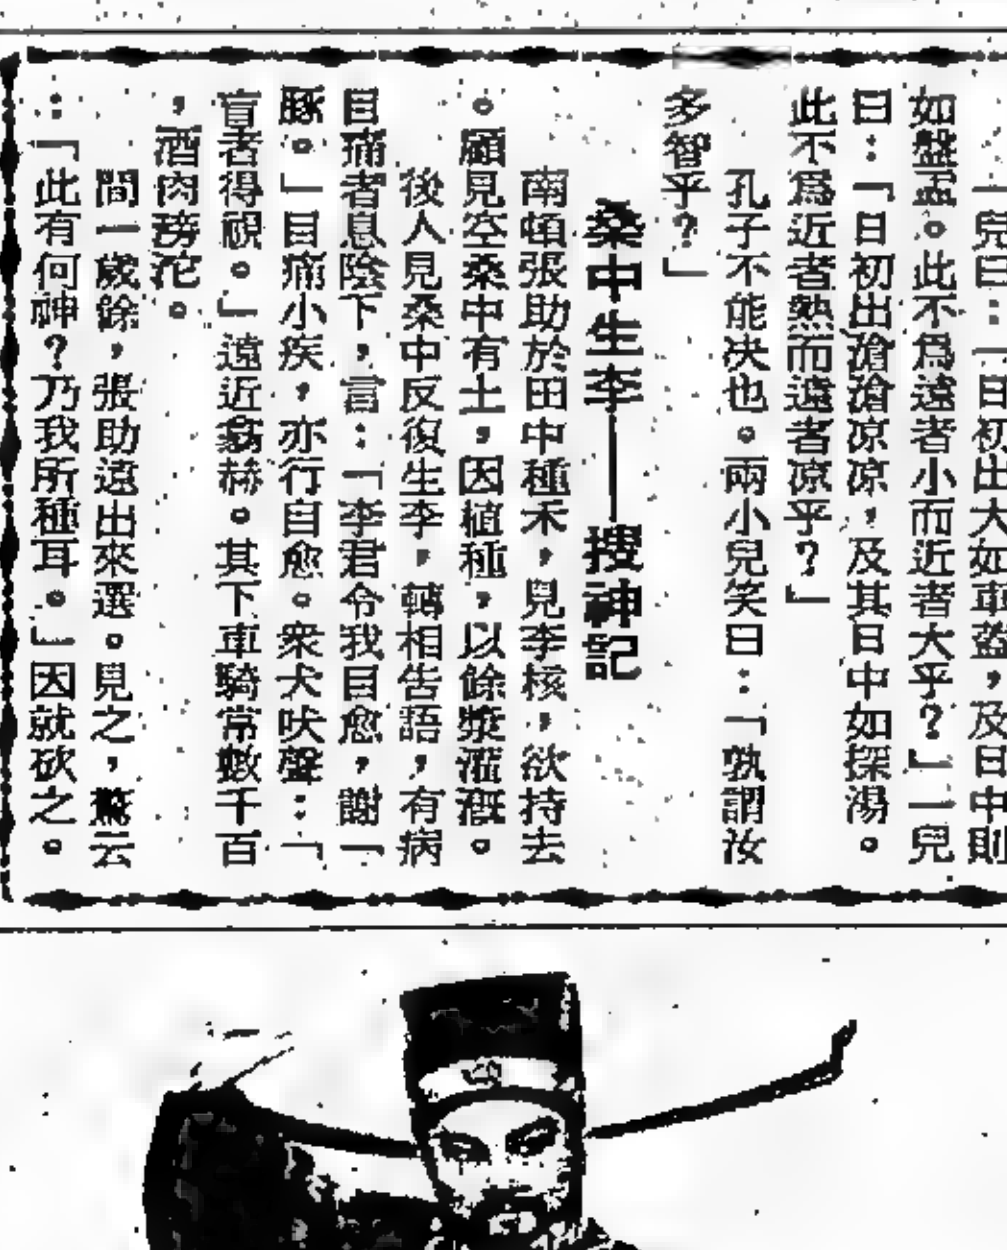 一兒曰：「日初出大如車蓋，及日中則
如盤盂。此不爲遠者小而近者大乎？」一兒
曰：「日初出滄滄凉凉，及其日中如探湯。
此不爲近者熱而遠者凉乎？」
孔子不能决也。兩小兒笑曰：「孰謂汝
多智乎？」
桑中生李——搜神記
南頓張助於田中種禾，見李核，欲持去
。顧見空桑中有土，因植種，以餘漿灌溉。
後人見桑中反復生李，轉相告語，有病
目痛者息陰下，言：「李君令我目愈，謝一
豚。」目痛小疾，亦行自愈。衆犬吠聲：「
盲者得視。」遠近翕赫。其下車騎常數千百
，酒肉滂沱。
間一歲餘，張助遠出來還。見之，驚云
：「此有何神？乃我所種耳。」因就砍之。